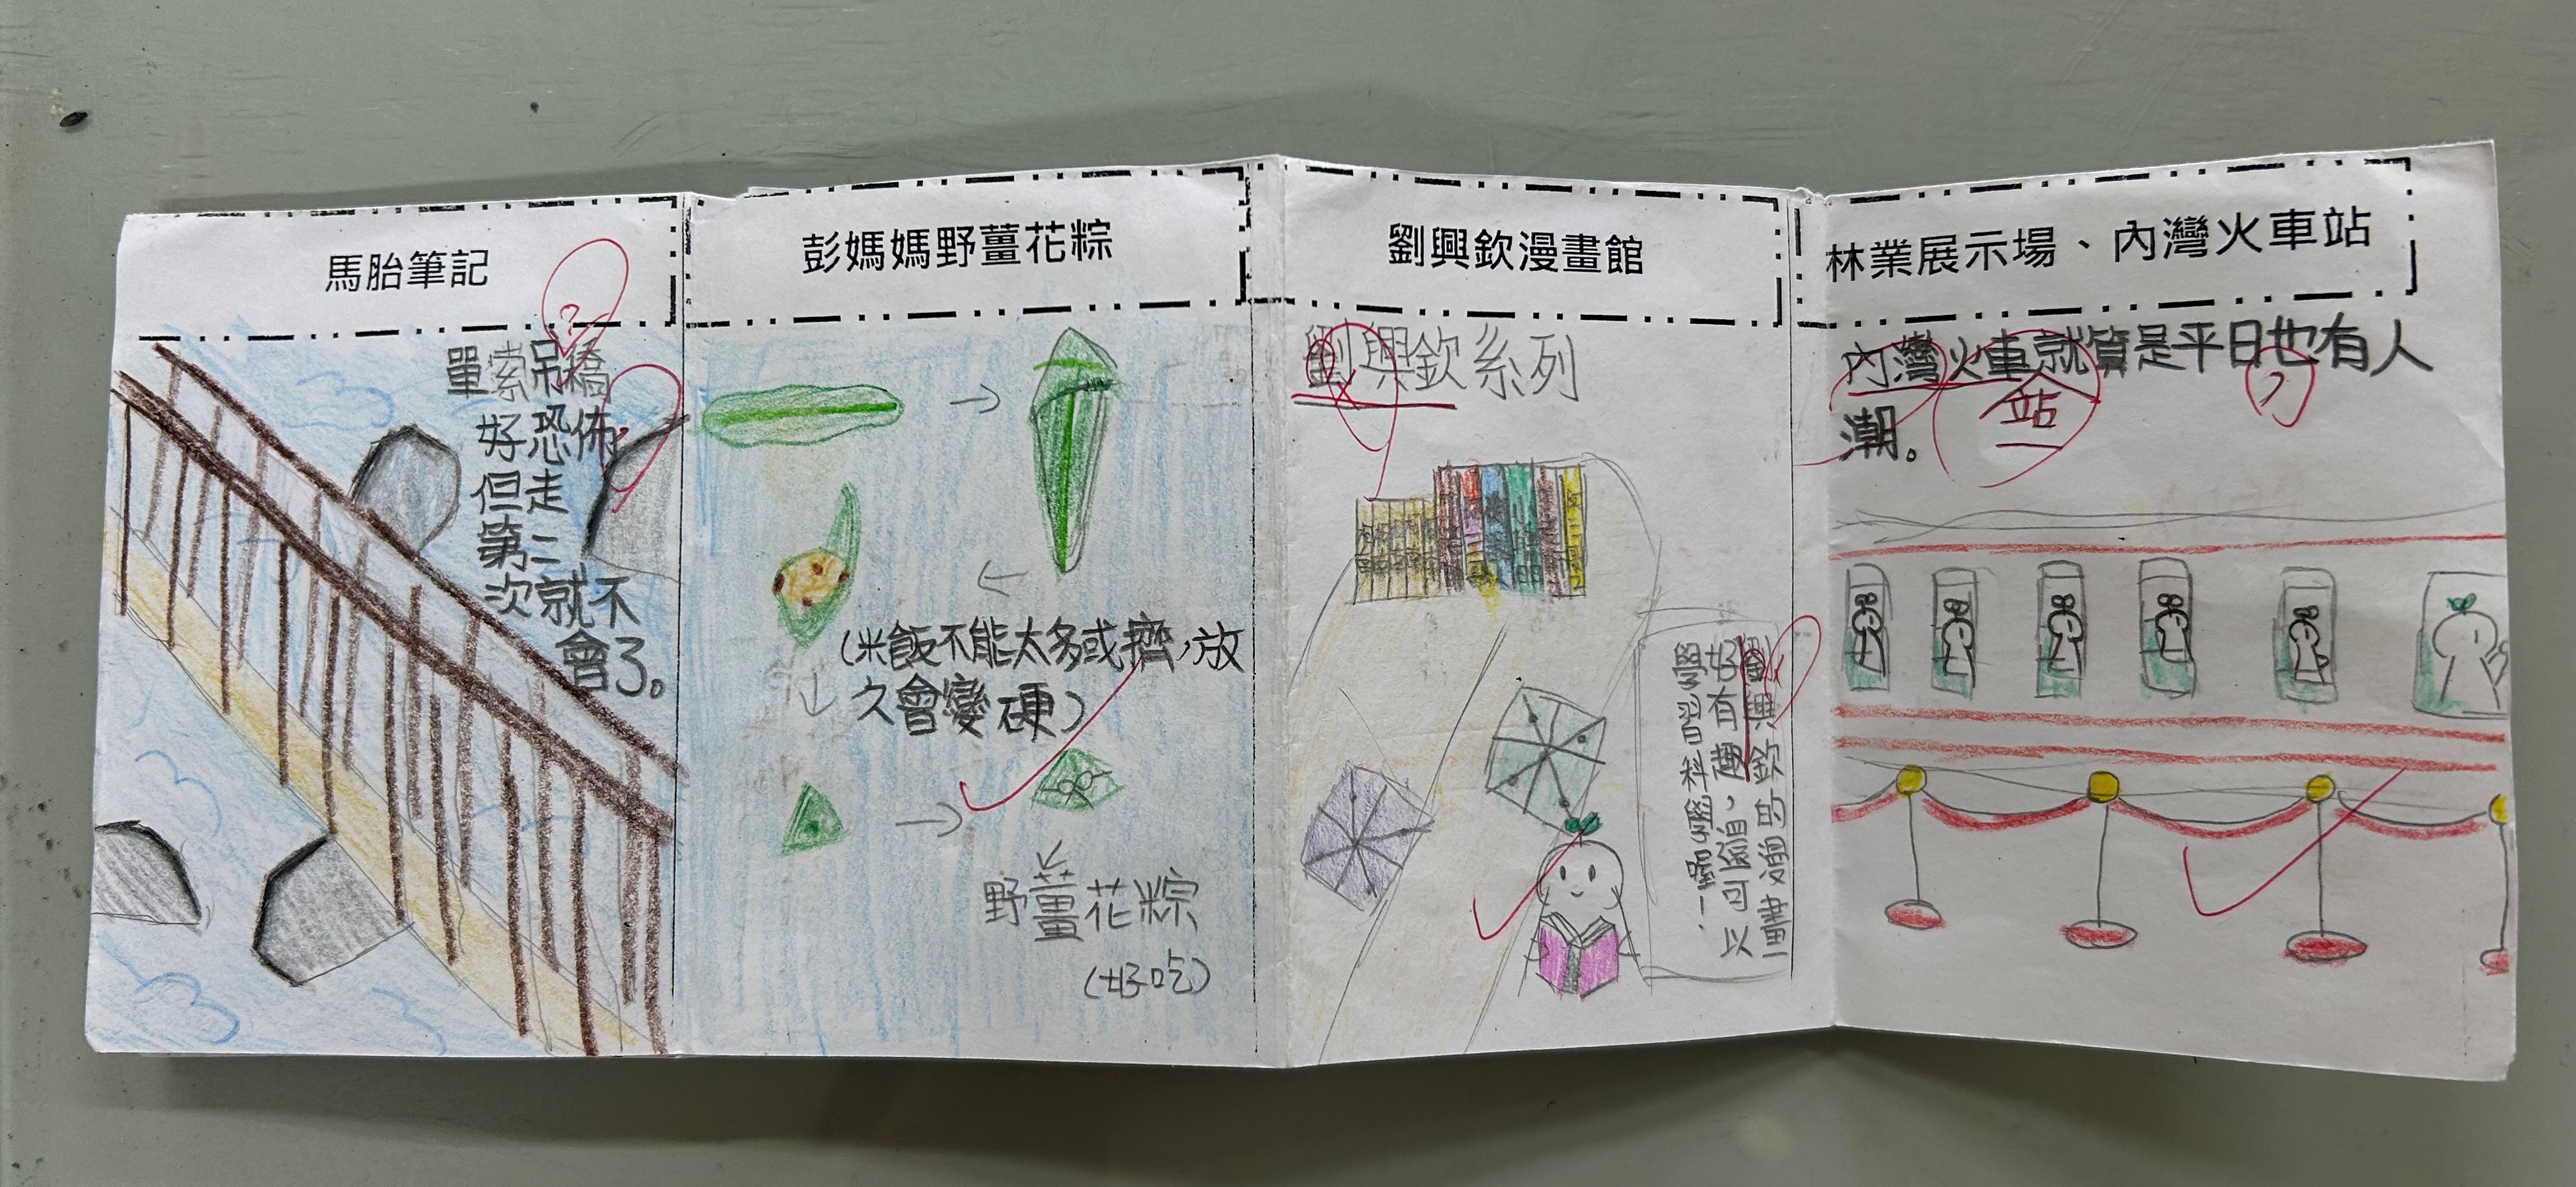 馬胎筆記
單索吊橋
好恐佈
但走
第二
次就不
會了。
彭媽媽野薑花粽
(米飯不能太多或擠,放
久會變硬)
野薑花粽
(好吃)
劉興欽漫畫館
劉興欽系列
劉興欽的漫畫
好有趣,還可以
學習科學喔!
林業展示場、內灣火車站
內灣火車就算是平日也有人
站
潮。